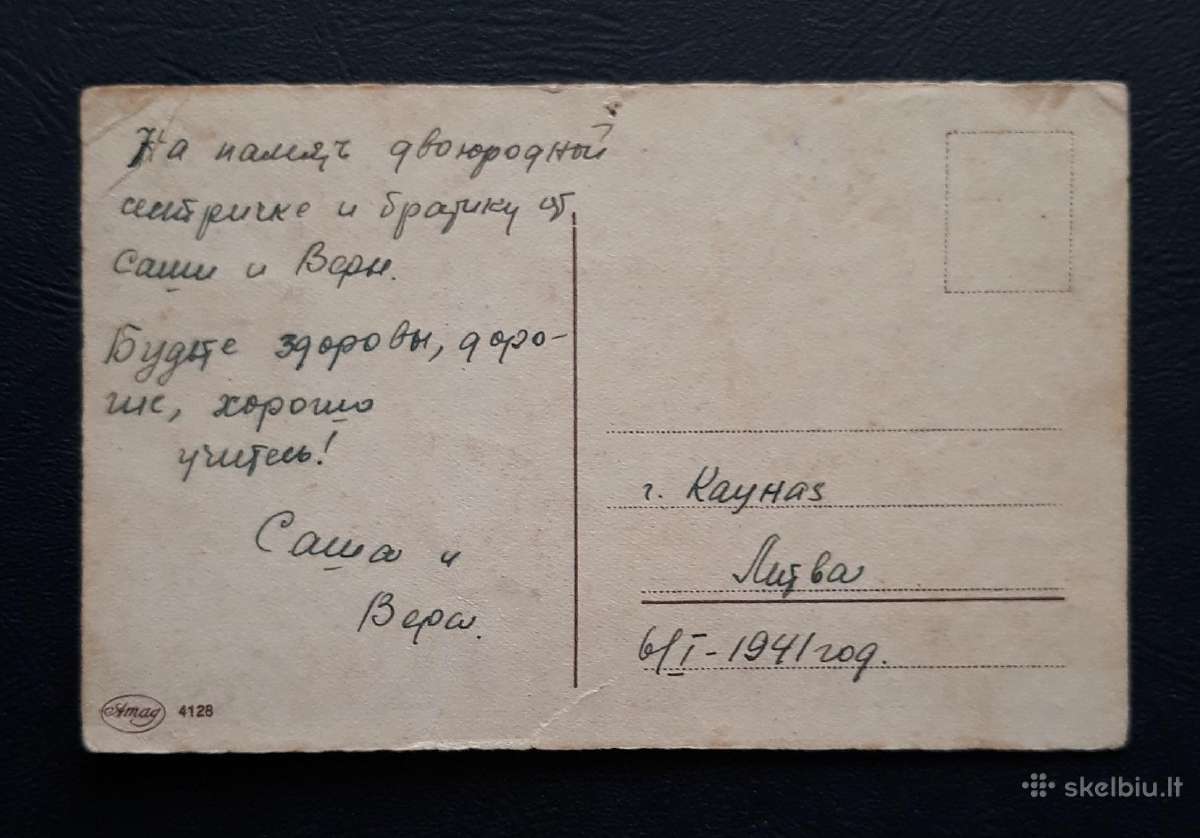 На память двоюродный
сестричке и братику от
Саши и Веры.
Будьте здоровы, доро-
гие, хорошо
учитесь!
Саша и
Вера.
г. Каунаs
Литва
6/I-1941 год.
Amag 4128
skelbiu.lt